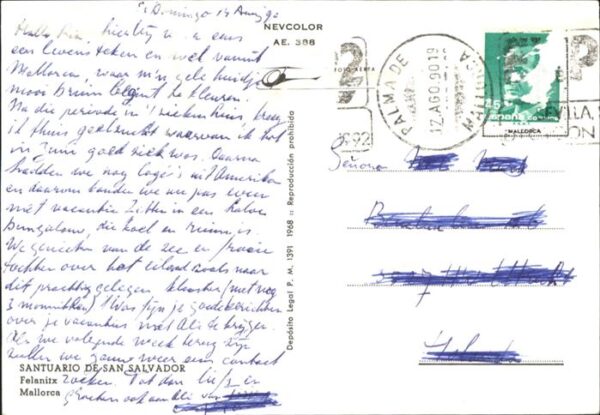 Domingo 14 Aug 90
Hallo Ria, hierbij weer eens
een levensteken en wel vanuit
Mallorca, waar m'n gele huidje
mooi bruin begint te kleuren.
Na die periode in 't ziekenhuis, kreeg
ik thuis geelzucht waarvan ik tot
in juni goed ziek was. Daarna
hadden we nog logé's uit Amerika
en daarom konden we nu pas weer
met vacantie. Zitten in een halve
bungalow, die koel en ruim is.
We genieten van de zee en mooie
tochten over het eiland zoals naar
dit prachtig gelegen klooster (met nog
3 monniken) Was fijn je goede berichten
over je vacantie met Ali te krijgen.
Als we volgende week terug zijn
zullen we gauw weer eens contact
zoeken. Tot dan, liefs en
groeten ook aan Ali van
SANTUARIO DE SAN SALVADOR
Felanitx
Mallorca
NEVCOLOR
AE. 388
Depósito Legal P. M. 1391 1968 :: Reproducción prohibida
PALMA DE MALLORCA
12 AGO 90 19
45
españa correos
MALLORCA
92
Señora